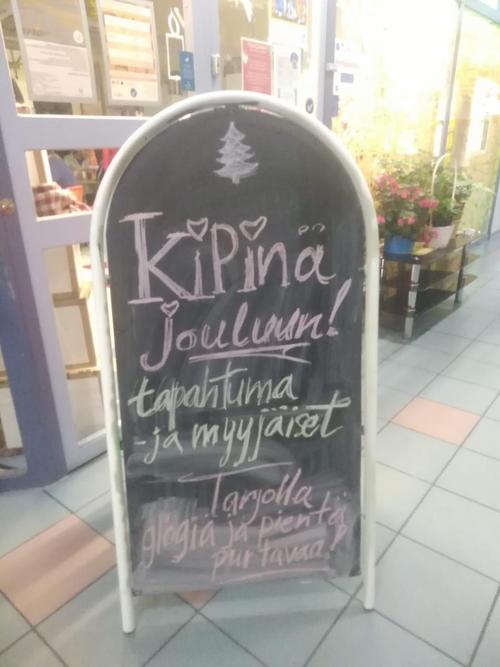 Kipinä
jouluun!
tapahtuma
-ja myyjäiset
Tarjolla
glögiä ja pientä
purtavaa!